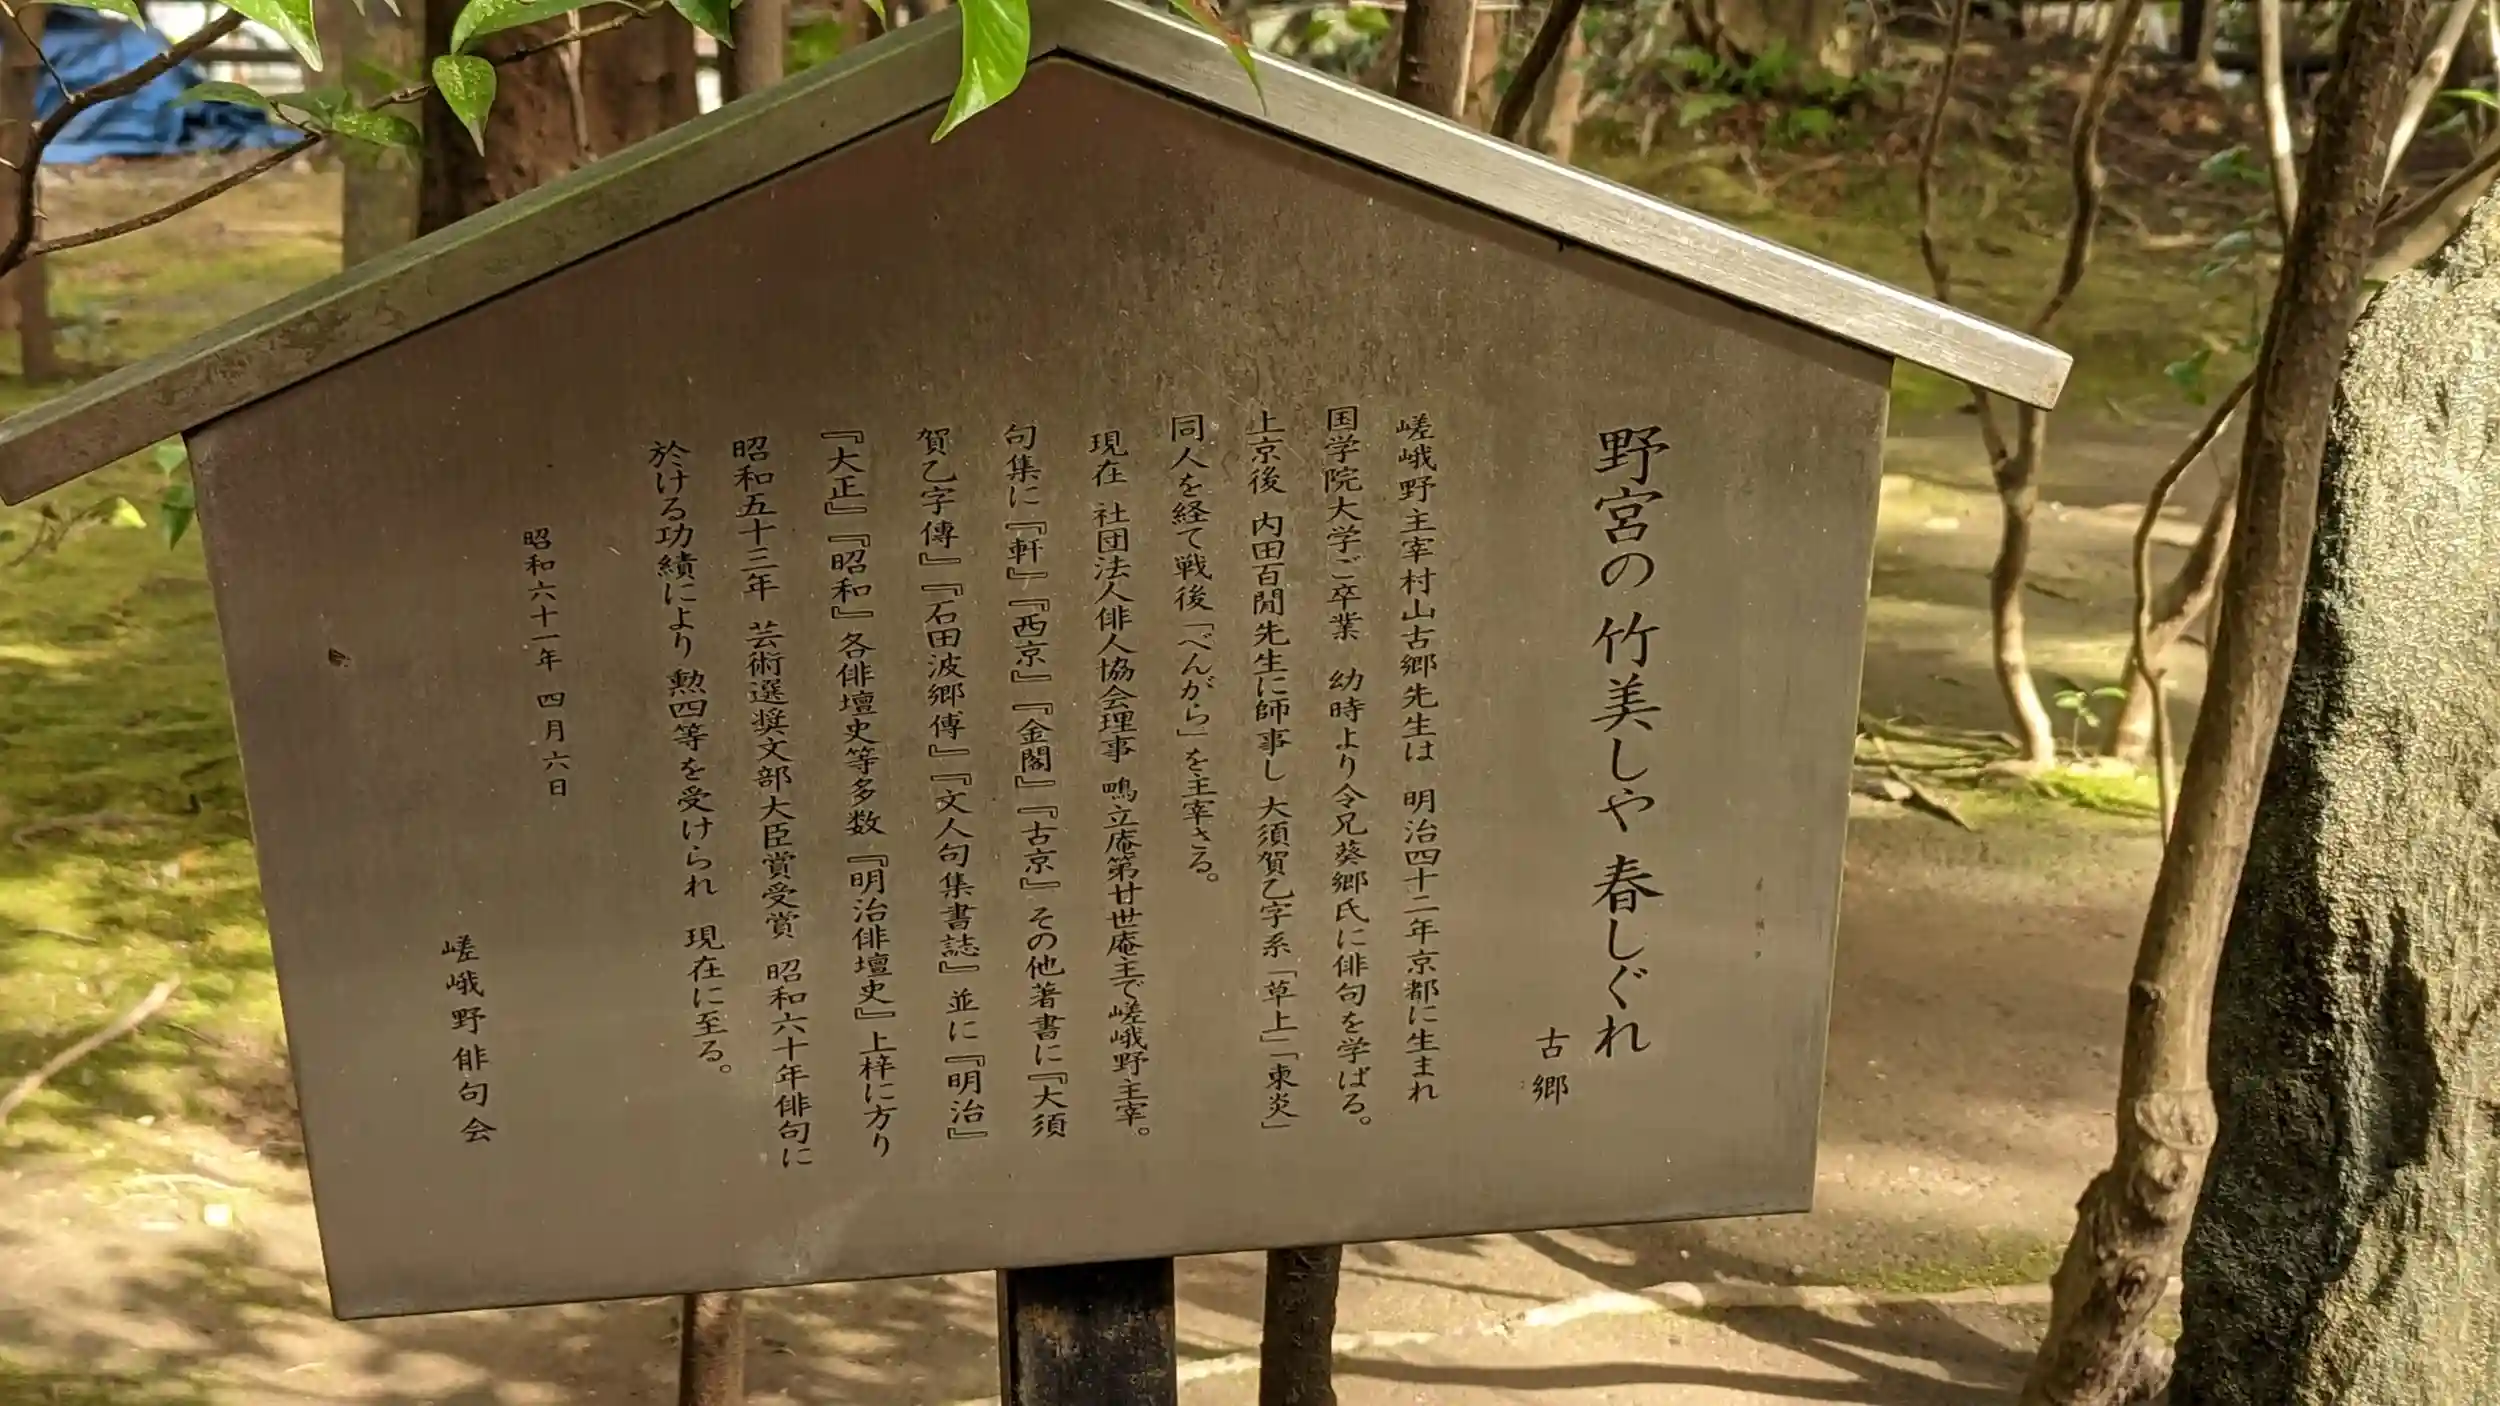 野宮の竹美しや春しぐれ
古郷
嵯峨野主宰村山古郷先生は 明治四十二年京都に生まれ
国学院大学ご卒業 幼時より令兄葵郷氏に俳句を学ばる。
上京後 内田百閒先生に師事し 大須賀乙字系「草上」「東炎」
同人を経て戦後「べんがら」を主宰さる。
現在 社団法人俳人協会理事 鴫立庵第廿世庵主で嵯峨野主宰。
句集に『軒』『西京』『金閣』『古京』その他著書に『大須
賀乙字傳』『石田波郷傳』『文人句集書誌』並に『明治』
『大正』『昭和』各俳壇史等多数 『明治俳壇史』上梓に方り
昭和五十三年 芸術選奨文部大臣賞受賞 昭和六十年俳句に
於ける功績により 勲四等を受けられ 現在に至る。
昭和六十一年 四月六日
嵯峨野俳句会